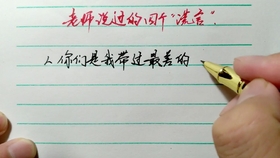 老师说过的四个“谎言”.
1. 你们是我带过最差的